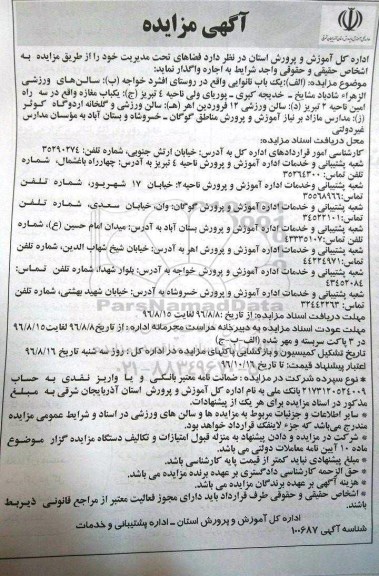 آگهی مزایده
اداره کل آموزش و پرورش استان در نظر دارد فضاهای تحت مدیریت خود را از طریق مزایده به
اشخاص حقیقی و حقوقی واجد شرایط به اجاره واگذار نماید:
موضوع مزایده: (الف): یک باب نانوایی واقع در روستای افشرد خواجه (ب): سالن‌های ورزشی
الزهراء شادباد مشایخ - خدیجه کبری - پوریای ولی ناحیه ۴ تبریز (ج): یکباب مغازه واقع در سه راه
امین ناحیه ۳ تبریز (د): سالن ورزشی ۱۲ فروردین اهر (هـ): سالن ورزشی و گلخانه اردوگاه کوثر
(ز): مدارس مازاد بر نیاز آموزش و پرورش مناطق گوگان - خسروشاه و بستان آباد به مؤسسان مدارس
غیردولتی
محل دریافت اسناد مزایده:
کارشناسی امور قراردادهای اداره کل به آدرس: خیابان ارتش جنوبی، شماره تلفن: ۳۵۲۹۰۲۷۴
شعبه پشتیبانی و خدمات اداره آموزش و پرورش ناحیه ۴ تبریز به آدرس: چهارراه باغشمال، شماره
تلفن تماس: ۳۵۲۶۴۳۰۰
شعبه پشتیبانی و خدمات اداره آموزش و پرورش ناحیه۳: خیابان ۱۷ شهریور، شماره تلفن
تماس: ۳۵۵۶۸۹۶۶
شعبه پشتیبانی و خدمات اداره آموزش و پرورش گوگان: وان، خیابان سعدی، شماره تلفن
تماس: ۳۴۵۲۲۱۰۱
شعبه پشتیبانی و خدمات اداره آموزش و پرورش بستان آباد به آدرس: میدان امام حسین (ع)، شماره
تماس: ۴۳۳۳۵۱۰۷
شعبه پشتیبانی و خدمات اداره آموزش و پرورش اهر به آدرس: خیابان شیخ شهاب الدین، شماره تلفن
تماس: ۴۴۲۲۴۹۷۱
شعبه پشتیبانی و خدمات اداره آموزش و پرورش خواجه به آدرس: بلوار شهدا، شماره تلفن تماس:
۴۳۴۵۲۰۸۴
شعبه پشتیبانی و خدمات اداره آموزش و پرورش خسروشاه به آدرس: خیابان شهید بهشتی، شماره تلفن
تماس: ۳۲۴۴۲۲۶۳
مهلت دریافت اسناد مزایده: از تاریخ ۹۶/۸/۸ لغایت ۹۶/۸/۱۵
مهلت عودت اسناد مزایده به دبیرخانه حراست محرمانه اداره: از تاریخ ۹۶/۸/۸ لغایت ۹۶/۸/۱۵
در ۳ پاکت سربسته و مهر شده (الف-ب-ج)
تاریخ تشکیل کمیسیون و بازگشایی پاکتهای مزایده در اداره کل: روز سه شنبه تاریخ ۹۶/۸/۱۶
اعتبار پیشنهاد قیمت: تا تاریخ ۹۶/۱۰/۱۶
* نوع سپرده شرکت در مزایده: ضمانت نامه معتبر بانکی و یا واریز نقدی به حساب
۲۱۷۳۱۲۰۵۲۴۰۰۹ بانک ملی به نام اداره کل آموزش و پرورش استان آذربایجان شرقی به مبلغ
مذکور در اسناد مزایده برای هر یک از پیشنهادات.
* سایر اطلاعات و جزئیات مربوط به مزایده ها و سالن های ورزشی در اسناد و شرایط عمومی مزایده
مندرج می‌باشد که جزء لاینفک قرارداد خواهد بود.
* شرکت در مزایده و دادن پیشنهاد به منزله قبول امتیازات و تکالیف دستگاه مزایده گزار موضوع
ماده ۱۰ آیین نامه معاملات دولتی می باشد.
* مبلغ پیشنهادی نباید کمتر از قیمت پایه کارشناسی باشد.
* حق الزحمه کارشناسی دادگستری بر عهده برنده مزایده می باشد.
* هزینه آگهی بر عهده برندگان مزایده می باشد.
* اشخاص حقیقی و حقوقی طرف قرارداد باید دارای مجوز فعالیت معتبر از مراجع قانونی ذیربط
باشند.
اداره کل آموزش و پرورش استان - اداره پشتیبانی و خدمات
شناسه آگهی ۱۰۰۶۸۷
ParsNamadData